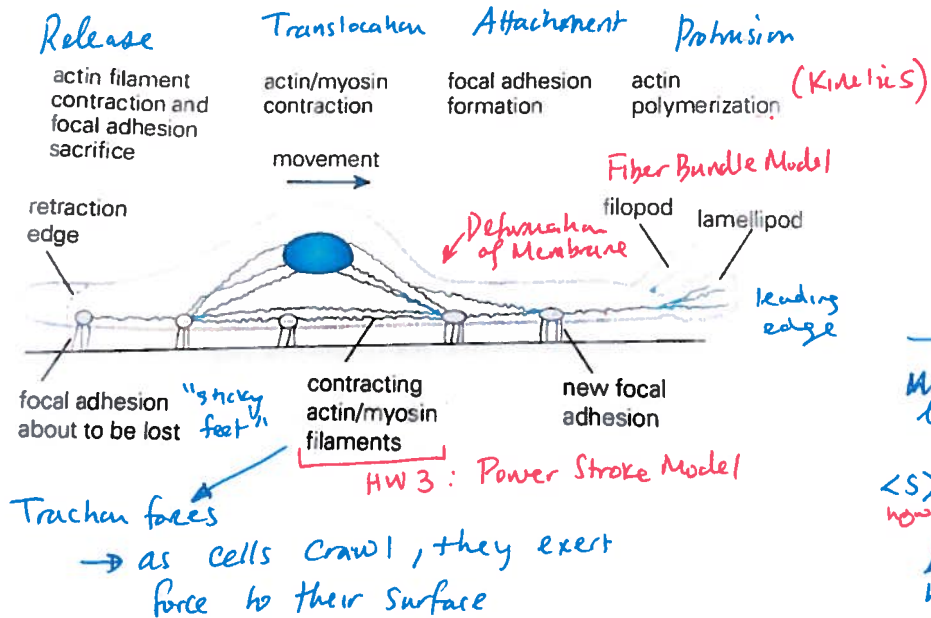 Release
Translocation
Attachment
Protrusion
actin filament
contraction and
focal adhesion
sacrifice
actin/myosin
contraction
focal adhesion
formation
actin
polymerization
(Kinetics)
movement
Fiber Bundle Model
retraction
edge
Deformation
of Membrane
filopod
lamellipod
leading
edge
focal adhesion
about to be lost
"sticky
feet"
contracting
actin/myosin
filaments
new focal
adhesion
HW3: Power Stroke Model
Traction forces
→ as cells crawl, they exert
force to their surface
<S>